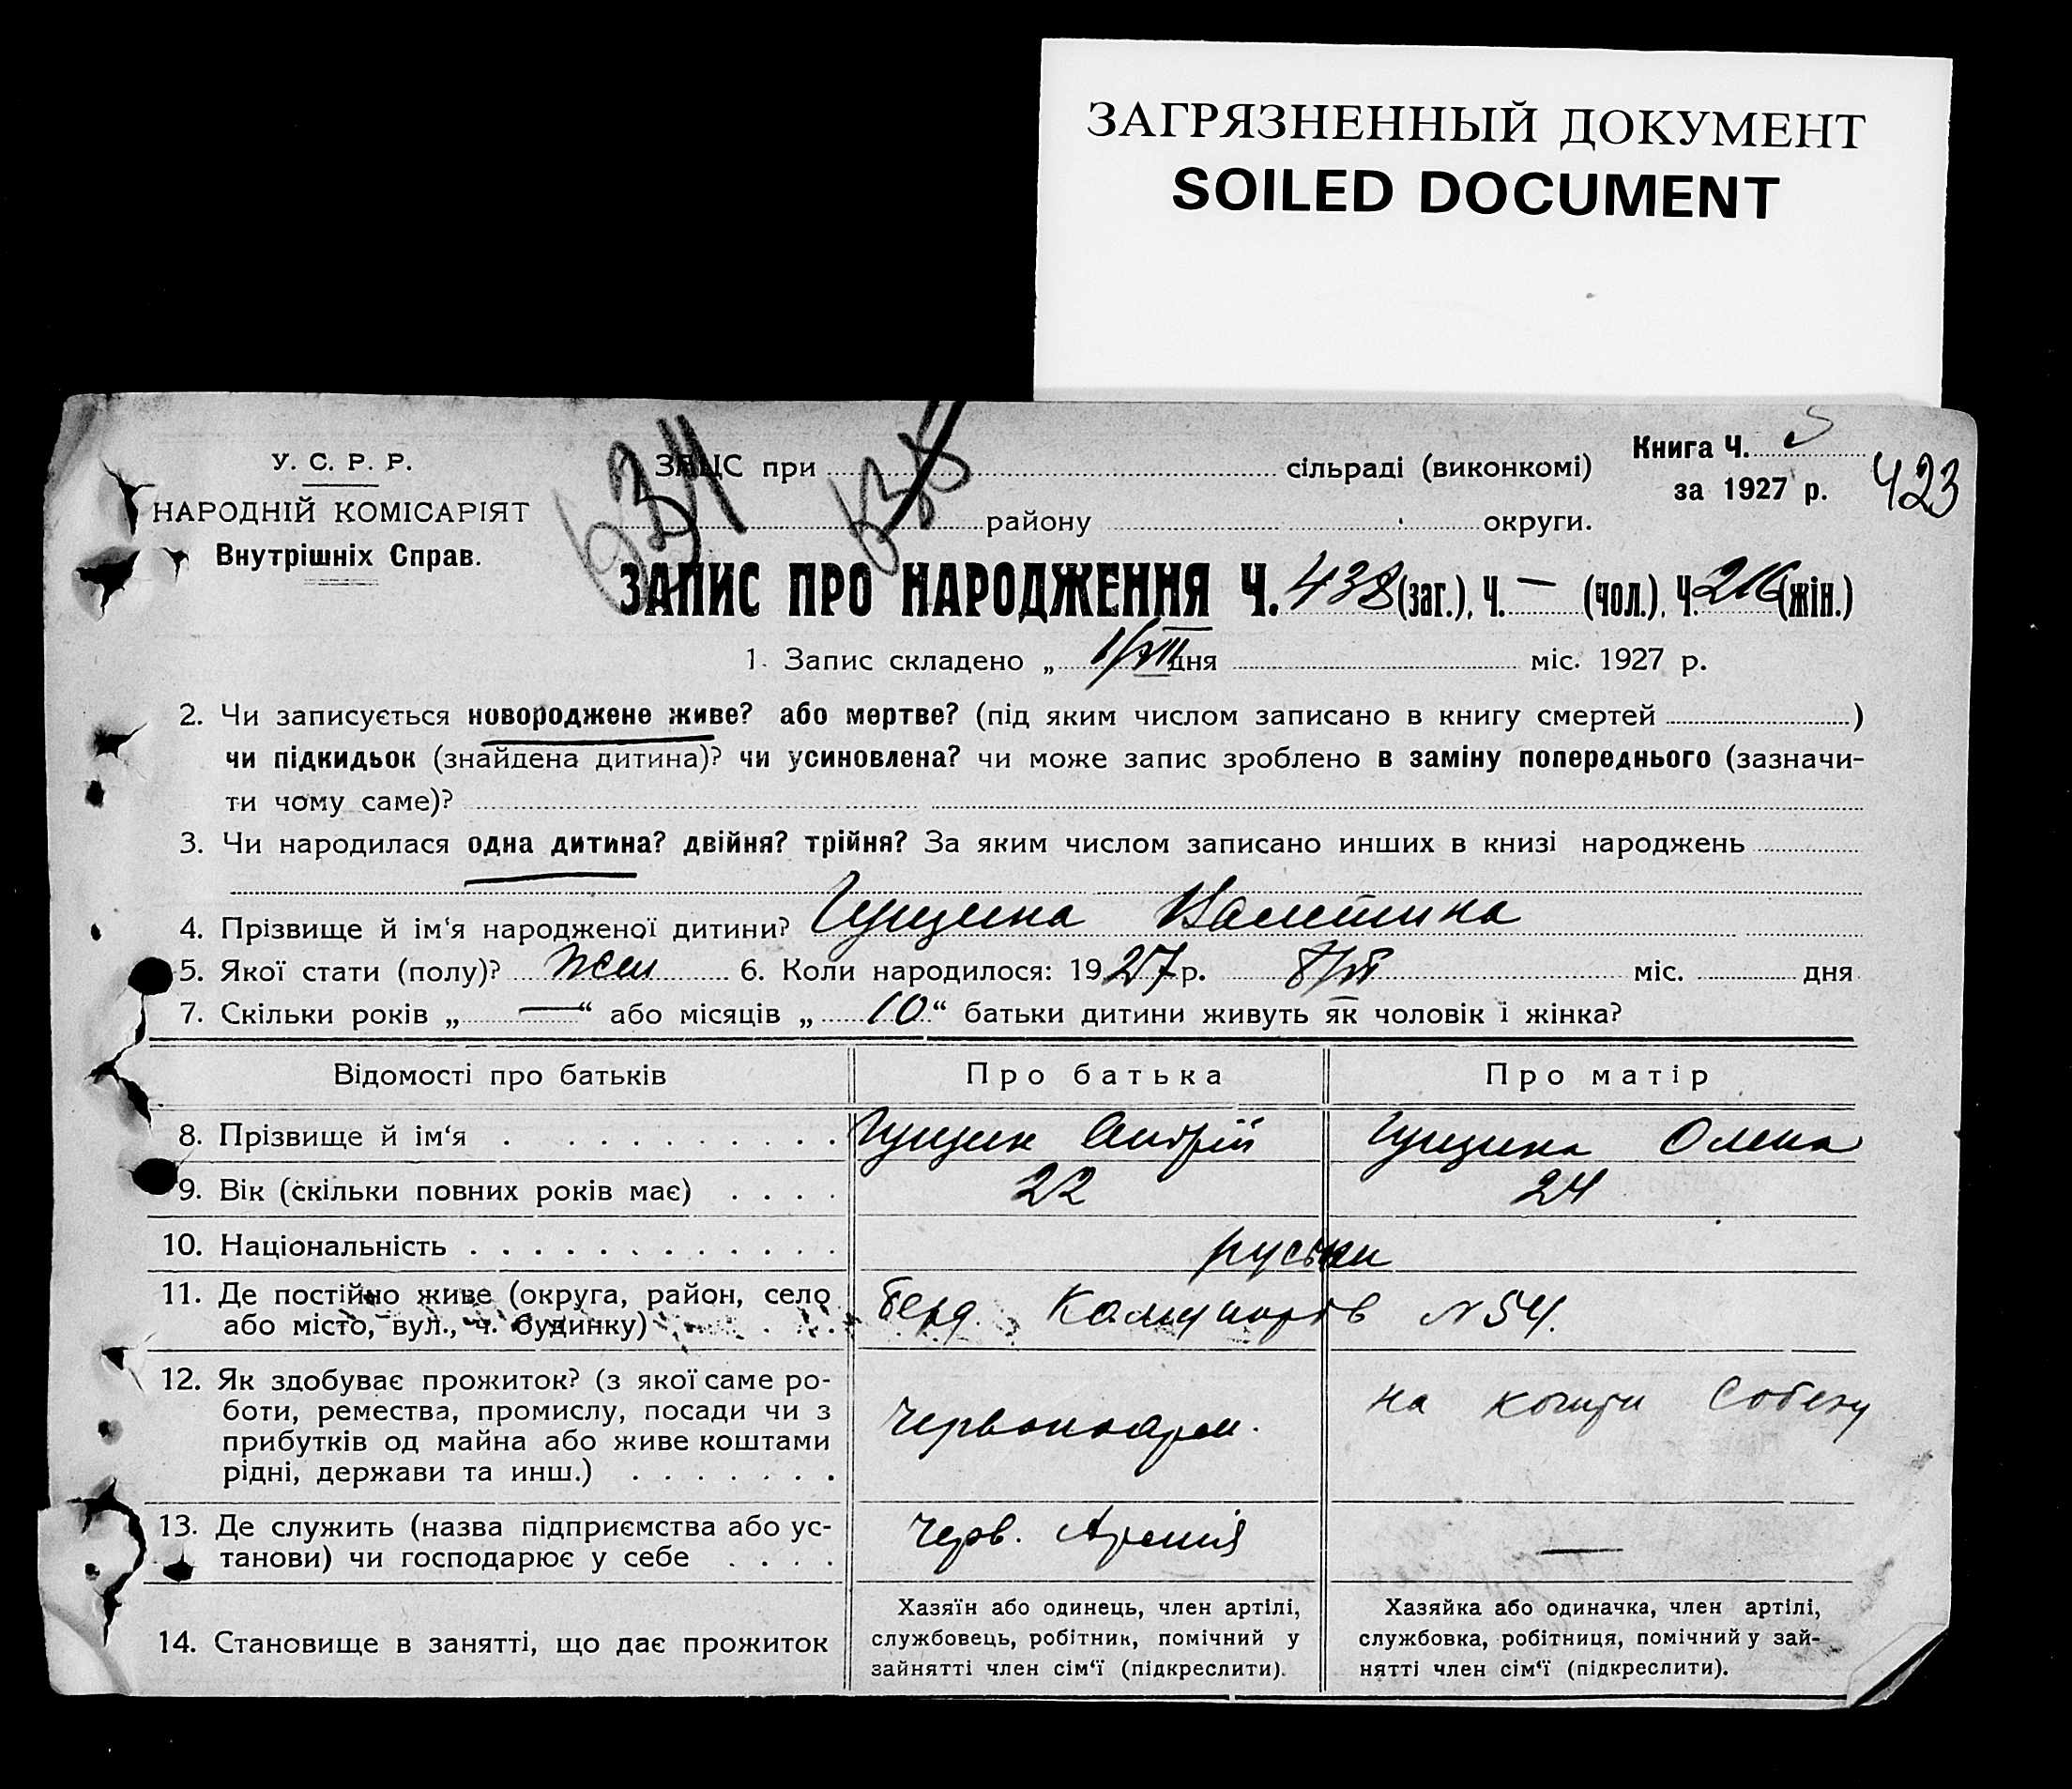 ЗАГРЯЗНЕННЫЙ ДОКУМЕНТ
SOILED DOCUMENT
У. С. Р. Р.
НАРОДНІЙ КОМІСАРІЯТ
Внутрішніх Справ.
ЗАЦС при сільраді (виконкомі)
району округи.
Книга Ч.
за 1927 р.
423
634
ЗАПИС ПРО НАРОДЖЕННЯ Ч. 438 (заг.), Ч. — (чол.), Ч. 216 (жін.)
1. Запис складено „ 1/VIII дня міс. 1927 р.
2. Чи записується новороджене живе? або мертве? (під яким числом записано в книгу смертей )
чи підкидьок (знайдена дитина)? чи усиновлена? чи може запис зроблено в заміну попереднього (зазначи-
ти чому саме)?
3. Чи народилася одна дитина? двійня? трійня? За яким числом записано инших в книзі народжень
4. Прізвище й ім‘я народженої дитини? Гущина
5. Якої стати (полу)? жін 6. Коли народилося: 1927 р. міс. дня
7. Скільки років „ — “ або місяців „ 10 “ батьки дитини живуть як чоловік і жінка?
Відомості про батьків Про батька Про матір
8. Прізвище й ім‘я Гущин Андрій Гущина Олена
9. Вік (скільки повних років має) 22 24
10. Національність руськи
11. Де постійно живе (округа, район, село
або місто, вул., ч. будинку) Берд. Комунарів N 54.
12. Як здобуває прожиток? (з якої саме ро-
боти, ремества, промислу, посади чи з
прибутків од майна або живе коштами
рідні, держави та инш.) Червоноарм. на кошти Собезу
13. Де служить (назва підприємства або ус-
танови) чи господарює у себе Черв. Армія —
14. Становище в занятті, що дає прожиток
Хазяїн або одинець, член артілі,
службовець, робітник, помічний у
зайнятті член сім‘ї (підкреслити).
Хазяйка або одиначка, член артілі,
службовка, робітниця, помічний у зай-
нятті член сім‘ї (підкреслити).